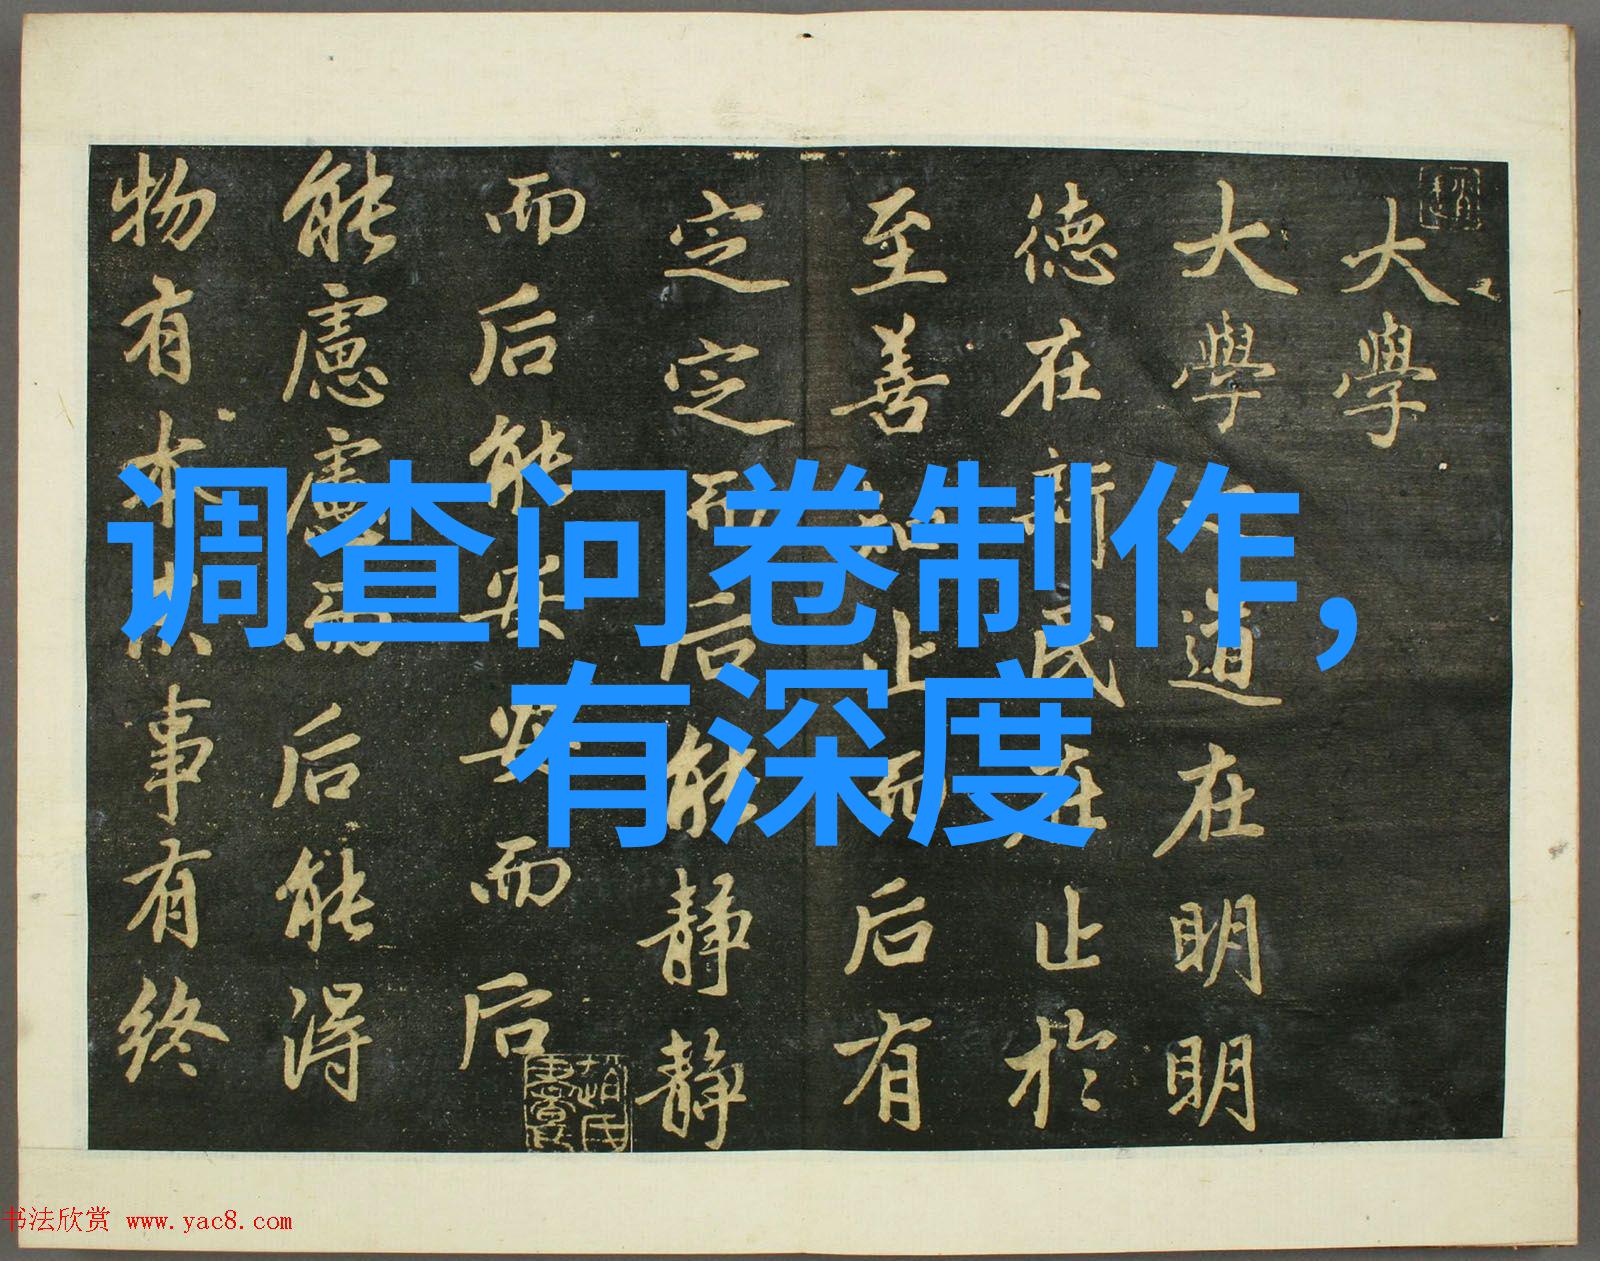 大學
大學之道在明明
德在新民在止於
至善知止而后有
定定而后能静静
而后能安安而后
能慮慮而后能得
物有本末事有終
调查问卷制作，
有深度
书法欣赏 www.yac8.com